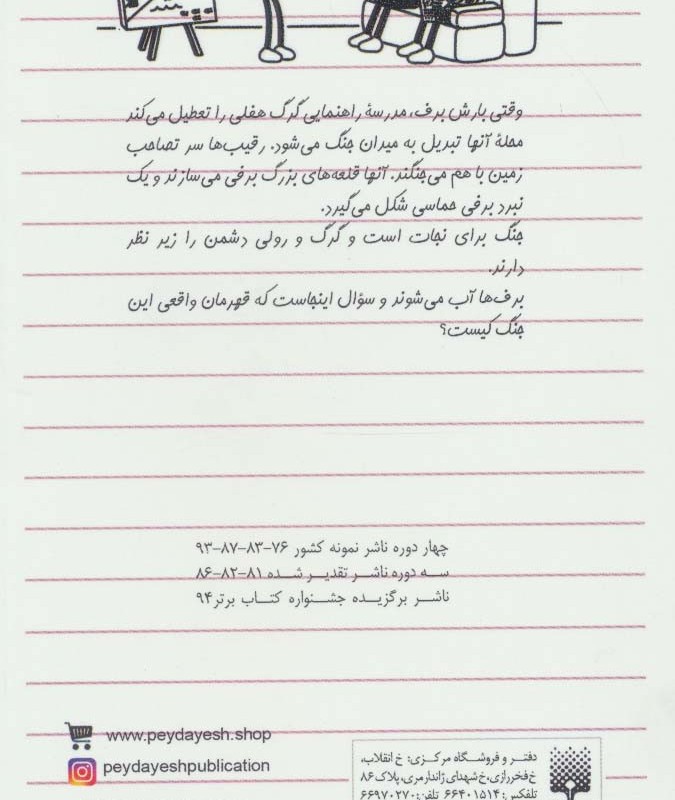 وقتی بارش برف، مدرسهٔ راهنمایی گرگ هفلی را تعطیل می‌کند
محلهٔ آنها تبدیل به میدان جنگ می‌شود. رقیب‌ها سر تصاحب
زمین با هم می‌جنگند. آنها قلعه‌های بزرگ برفی می‌سازند و یک
نبرد برفی حماسی شکل می‌گیرد.
جنگ برای نجات است و گرگ و رولی دشمن را زیر نظر
دارند.
برف‌ها آب می‌شوند و سؤال اینجاست که قهرمان واقعی این
جنگ کیست؟
چهار دوره ناشر نمونه کشور ۷۶-۸۳-۸۷-۹۳
سه دوره ناشر تقدیر شده ۸۱-۸۲-۸۶
ناشر برگزیده جشنواره کتاب برتر۹۴
www.peydayesh.shop
peydayeshpublication
دفتر و فروشگاه مرکزی: خ انقلاب،
خ فخررازی، خ شهدای ژاندارمری، پلاک ۸۶
تلفکس: ۶۶۴۰۱۵۱۴ تلفن: ۶۶۹۷۰۲۷۰